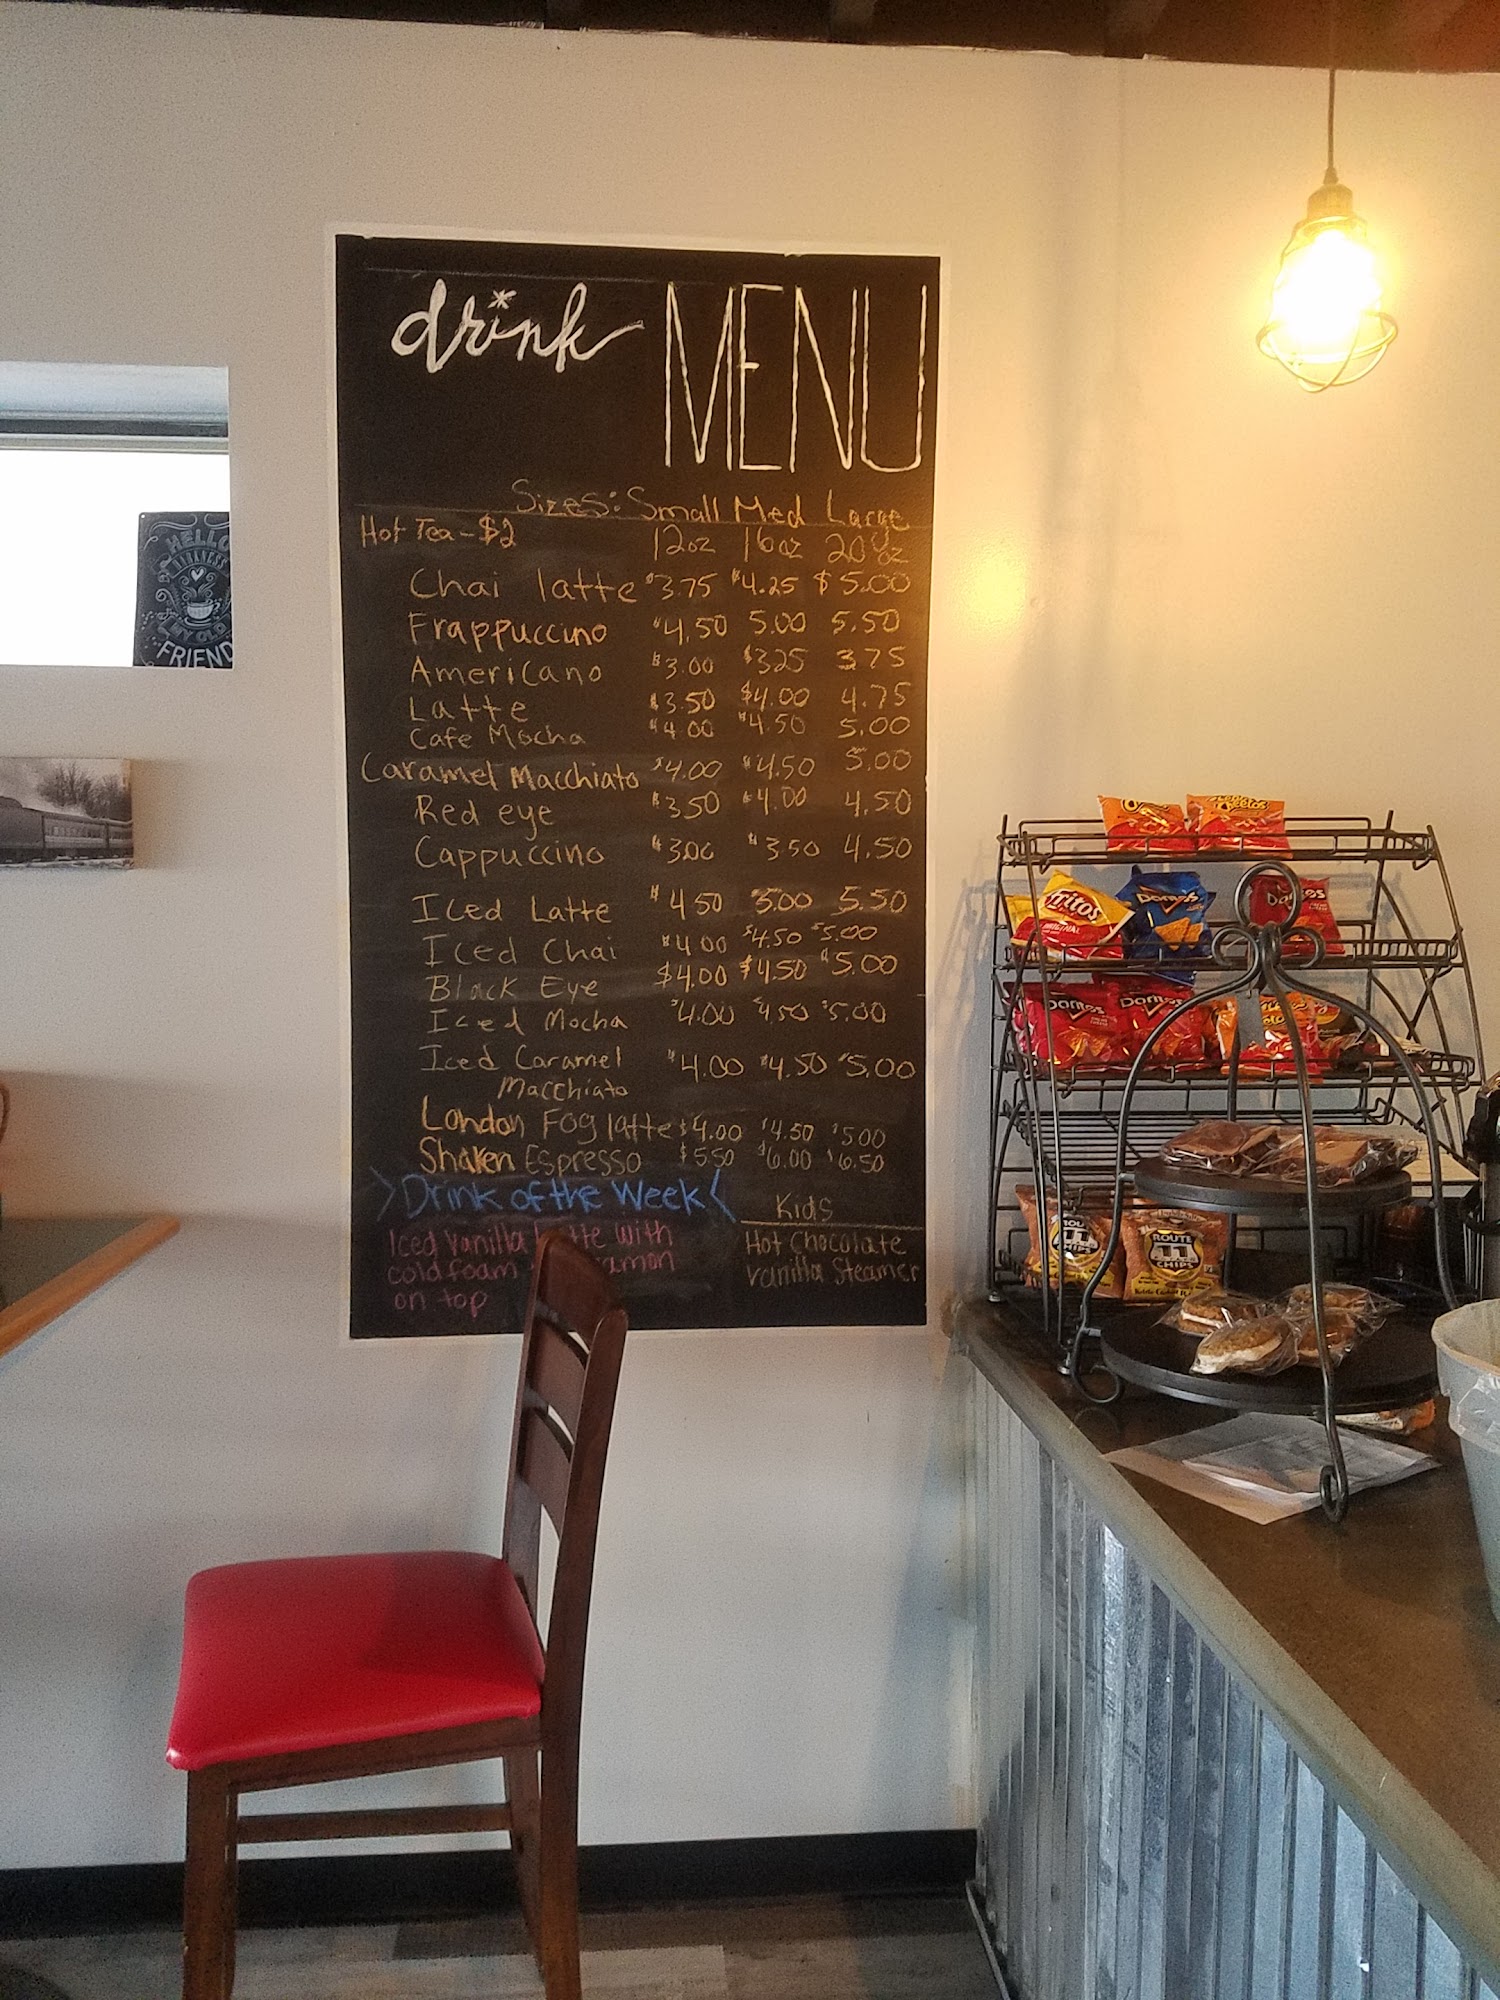 drink MENU
Sizes: Small Med Large
Hot Tea - $2 12oz 16oz 20oz
Chai latte $3.75 $4.25 $5.00
Frappuccino $4.50 5.00 5.50
Americano $3.00 $3.25 3.75
Latte $3.50 $4.00 4.75
Cafe Mocha $4.00 $4.50 5.00
Caramel Macchiato $4.00 $4.50 5.00
Red eye $3.50 $4.00 4.50
Cappuccino $3.00 $3.50 4.50
Iced Latte $4.50 5.00 5.50
Iced Chai $4.00 $4.50 $5.00
Black Eye $4.00 $4.50 $5.00
Iced Mocha $4.00 $4.50 $5.00
Iced Caramel $4.00 $4.50 $5.00
Macchiato
London Fog latte $4.00 $4.50 $5.00
Shaken Espresso $5.50 $6.00 $6.50
Drink of the Week
Iced Vanilla with
cold foam
on top
Kids
Hot Chocolate
Vanilla Steamer
HELLO
DARKNESS
MY OLD
FRIEND
Fritos
ORIGINAL
Doritos
Doritos
Doritos
ROUTE
11
CHIPS
11
CHIPS